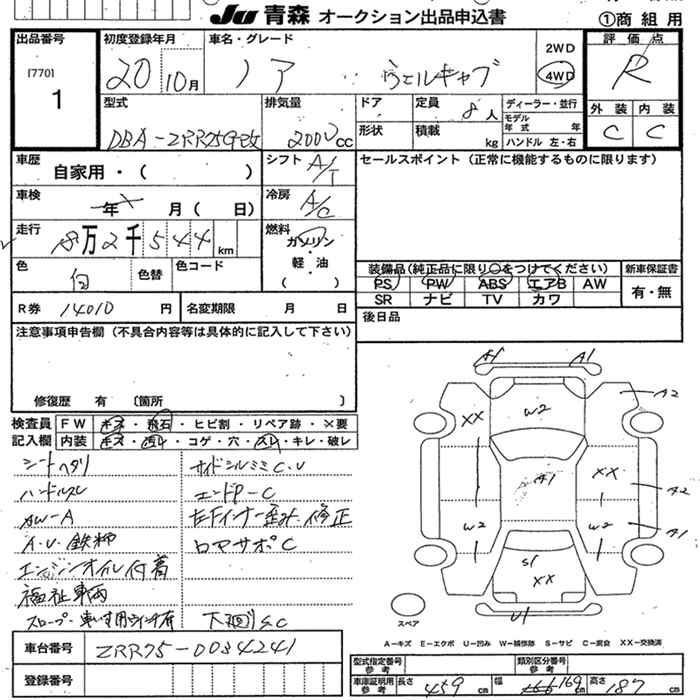 JU 青森 オークション出品申込書
①商組用
出品番号
[770]
1
初度登録年月
20 10月
車名・グレード
ノア
2WD
4WD
評価点
R
外装 内装
C C
型式
DBA-ZRR75G改
排気量
2000cc
ドア
形状
定員 8人
積載 kg
ディーラー・並行
モデル年式 年
ハンドル 左・右
車歴
自家用・( )
シフト A/T
セールスポイント (正常に機能するものに限ります)
車検
年 月( 日)
冷房 A/C
走行
8万2千544km
燃料
ガソリン・
軽・油
( )
色
白
色替
色コード
装備品(純正品に限り○をつけてください)
新車保証書
PS PW ABS エアB AW
有・無
SR ナビ TV カワ
R券 14010円
名変期限 月 日
後日品
注意事項申告欄 (不具合内容等は具体的に記入して下さい)
修復歴 有 〔箇所 〕
検査員
記入欄
FW キズ・飛石・ヒビ割・リペア跡・×要
内装 キズ・汚れ・コゲ・穴・スレ・キレ・破レ
シートヘタリ
サイドシルミミC.U
ハンドルスレ
エンドP-C
AW-A
左Fインナー歪み.修正
A.U.鉄粉
ロアサポC
エンジンオイル付着
福祉車両
スロープ・車いす用ウインチ有
下廻りS.C
車台番号 ZRR75-0034241
登録番号
A1 A1
A2
XX
W2
A1
XX
A2
W2
W2
A1
S1
XX
U1
スペア
A-キズ E-エクボ U-凹み W-補修跡 S-サビ C-腐食 XX-交換済
型式指定番号
参考
類別区分番号
参考
車庫証明用
参考
長さ 459cm 幅 169cm 高さ 187cm